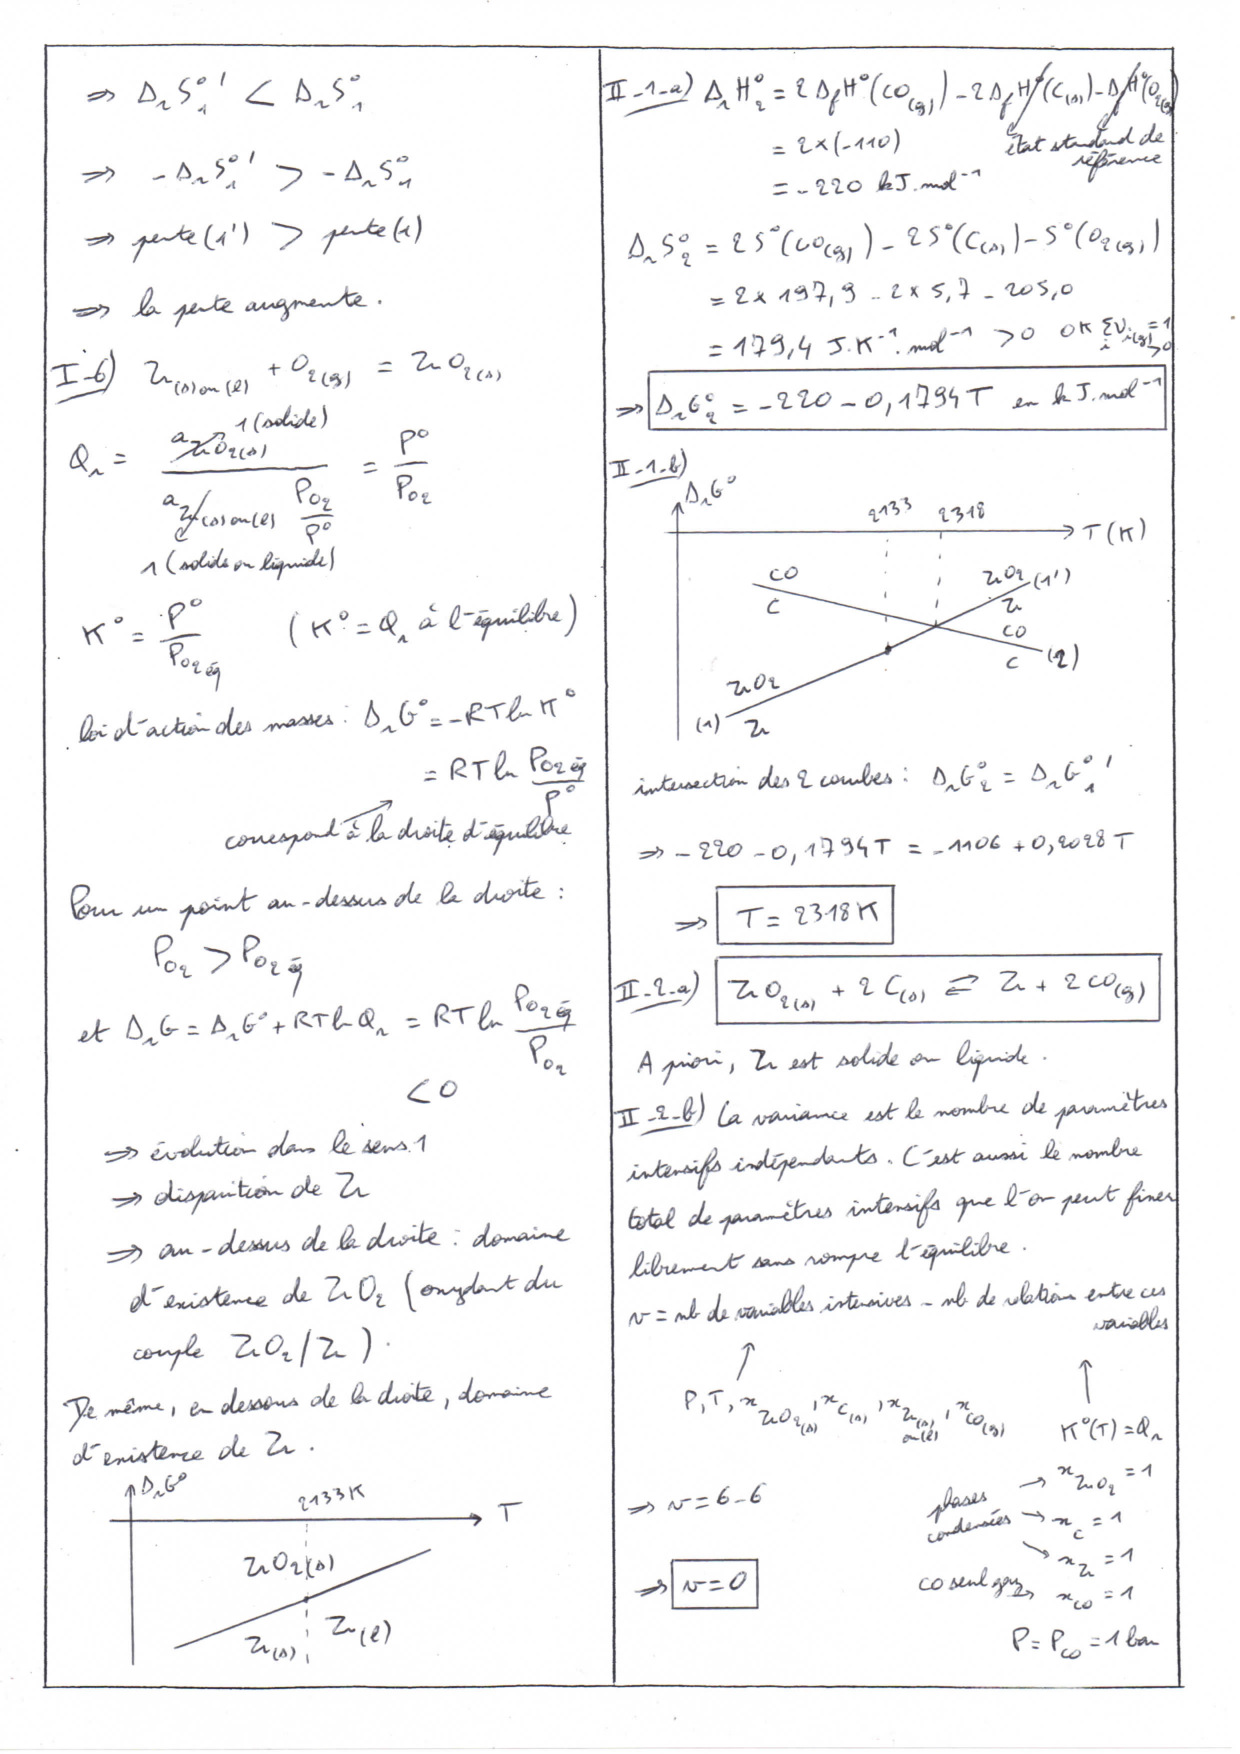 ⇒ ΔrS°1' < ΔrS°1
⇒ -ΔrS°1' > -ΔrS°1
⇒ pente(1') > pente(1)
⇒ la pente augmente.
I-6) Zr(s) ou (l) + O2(g) = ZrO2(s)
1 (solide)
Qr = aZrO2(s) / (aZr(s) ou (l) PO2/P°) = P°/PO2
1 (solide ou liquide)
K° = P°/PO2 éq (K° = Qr à l'équilibre)
loi d'action des masses : ΔrG° = -RT ln K°
= RT ln PO2 éq/P°
correspond à la droite d'équilibre
Pour un point au-dessus de la droite :
PO2 > PO2 éq
et ΔrG = ΔrG° + RT ln Qr = RT ln PO2 éq/PO2
< 0
⇒ évolution dans le sens 1
⇒ disparition de Zr
⇒ au-dessus de la droite : domaine
d'existence de ZrO2 (oxydant du
couple ZrO2/Zr).
De même, en dessous de la droite, domaine
d'existence de Zr.
ΔrG°
2133 K
T
ZrO2(s)
Zr(s)
Zr(l)
II-1-a) ΔrH°2 = 2ΔfH°(CO(g)) - 2ΔfH°(C(s)) - ΔfH°(O2(g))
= 2×(-110)
état standard de
référence
= -220 kJ.mol⁻¹
ΔrS°2 = 2S°(CO(g)) - 2S°(C(s)) - S°(O2(g))
= 2×197,9 - 2×5,7 - 205,0
= 179,4 J.K⁻¹.mol⁻¹ > 0 OK Σi νi(g) = 1 > 0
⇒ ΔrG°2 = -220 - 0,1794 T en kJ.mol⁻¹
II-1-b)
ΔrG°
2133
2318
T(K)
CO
C
ZrO2 (1')
Zr
CO
C (2)
ZrO2
(1) Zr
intersection des 2 courbes : ΔrG°2 = ΔrG°1'
⇒ -220 - 0,1794 T = -1106 + 0,2028 T
⇒ T = 2318 K
II-2-a) ZrO2(s) + 2 C(s) ⇄ Zr + 2 CO(g)
A priori, Zr est solide ou liquide.
II-2-b) La variance est le nombre de paramètres
intensifs indépendants. C'est aussi le nombre
total de paramètres intensifs que l'on peut fixer
librement sans rompre l'équilibre.
v = nb de variables intensives - nb de relations entre ces
variables
P, T, xZrO2(s), xC(s), xZr(s) ou (l), xCO(g)
K°(T) = Qr
xZrO2 = 1
⇒ v = 6 - 6
phases
condensées → xC = 1
xZr = 1
⇒ v = 0
CO seul gaz → xCO = 1
P = PCO = 1 bar